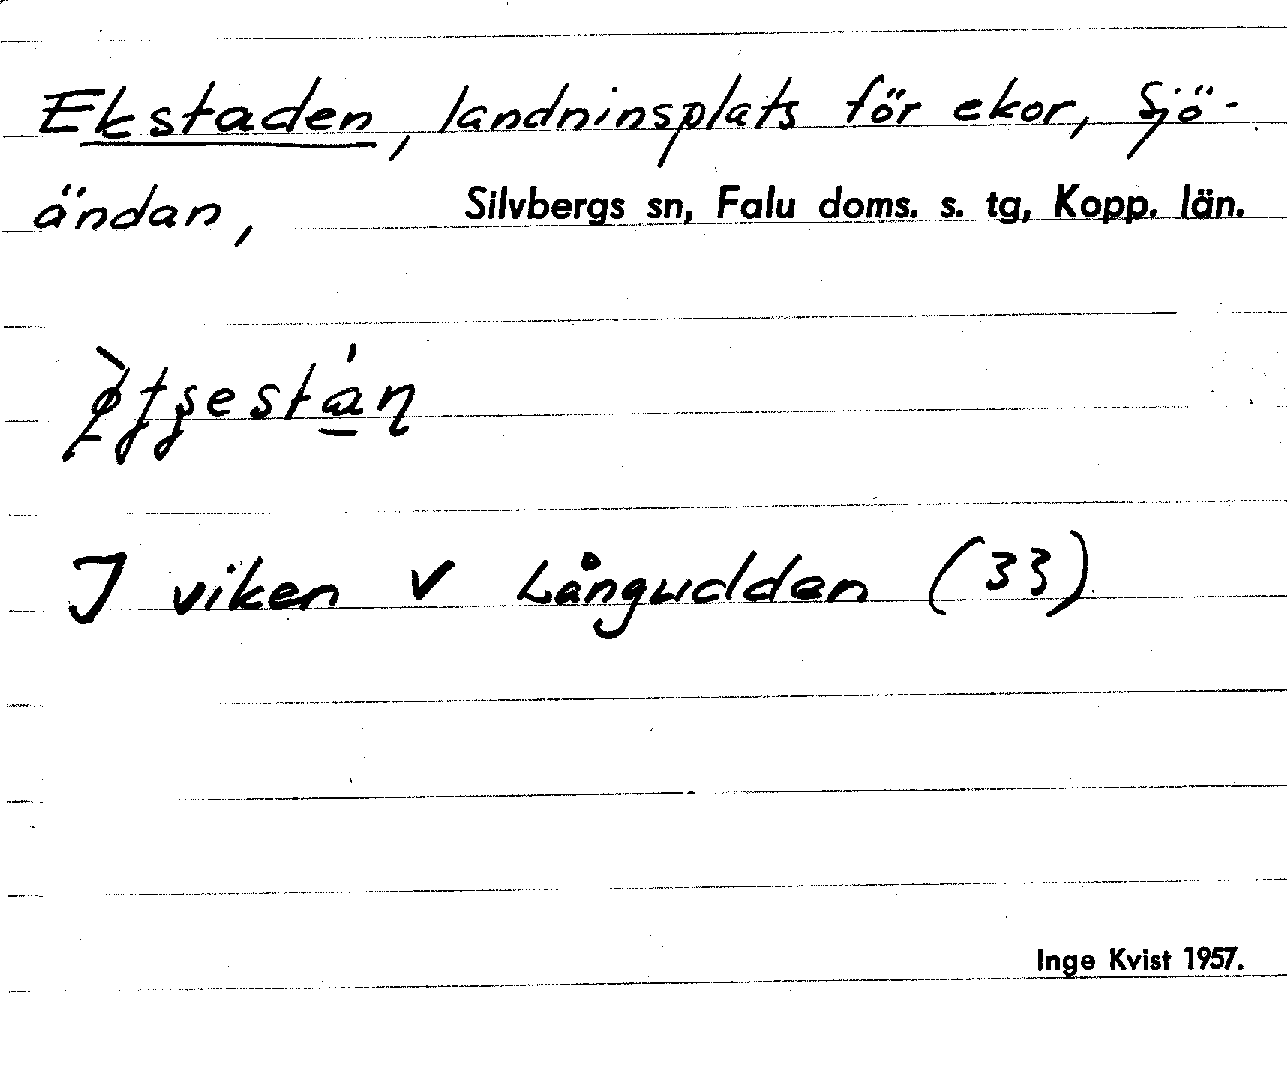 Ekstaden, landninsplats för ekor, Sjö-
ändan, Silvbergs sn, Falu doms. s. tg, Kopp. län.
I viken V Långudden (33)
Inge Kvist 1957.